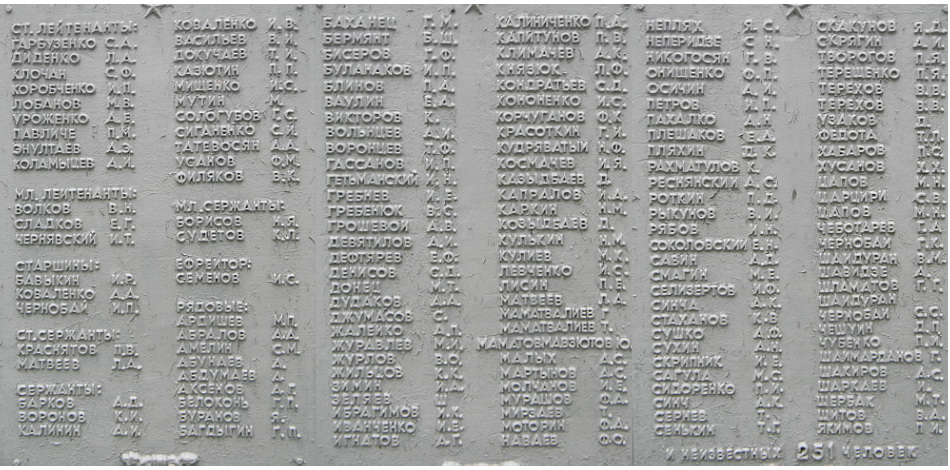 СТ. ЛЕЙТЕНАНТЫ:
ГАРБУЗЕНКО С.А.
ДИДЕНКО Л.А.
КЛОЧАН С.Ф.
КОРОБЧЕНКО И.П.
ЛОБАНОВ М.В.
УРОЖЕНКО А.Е.
ПАВЛИЧЕ П.И.
ЯНУЛТАЕВ А.З.
КОЛАМЫЦЕВ А.И.
МЛ. ЛЕЙТЕНАНТЫ:
ВОЛКОВ В.Н.
СЛАДКОВ Е.Г.
ЧЕРНЯВСКИЙ И.Т.
СТАРШИНЫ:
БАВЫКИН И.Я.
КОВАЛЕНКО А.Д.
ЧЕРНОБАЙ И.П.
СТ. СЕРЖАНТЫ:
КРАСНЯТОВ П.В.
МАТВЕЕВ Л.А.
СЕРЖАНТЫ:
БАРКОВ А.Д.
ВОРОНОВ К.И.
КАЛИНИН А.И.
КОВАЛЕНКО И.В.
ВАСИЛЬЕВ В.И.
ДОКУЧАЕВ И.Т.
КАЗЮТИН П.П.
МИЩЕНКО И.С.
МУТИН М.
СОЛОГУБОВ Г.С.
СИГАНЕНКО С.И.
ТАТЕВОСЯН А.А.
УСАНОВ Ф.М.
ФИЛЯКОВ В.К.
МЛ. СЕРЖАНТЫ:
БОРИСОВ Н.Я.
СУДЕТОВ К.П.
ЕФРЕЙТОР:
СЕМЕНОВ И.С.
РЯДОВЫЕ:
АРДИШЕВ М.П.
АВЕРЬЯНОВ А.А.
АМЕЛИН С.М.
АБУНАЕВ А.
АБДУМАЕВ А.
АКСЕНОВ А.П.
БЕЛОКОНЬ Г.П.
БУРАНОВ Я.
БАГДЫГИН Г.П.
БАХАНЕЦ Г.М.
БЕРМЯНТ Б.Ш.
БИСЕРОВ Г.Ф.
БУЛАНАКОВ И.П.
БЛИНОВ П.А.
ВАУЛИН Е.А.
ВИКТОРОВ К.
ВОЛЬНЦЕВ А.И.
ВОРОНЦЕВ Т.Ф.
ГАССАНОВ И.П.
ГЕТЬМАНСКИЙ И.Н.
ГРЕБНЕВ И.Е.
ГРЕБЕНЮК В.С.
ГРОШЕВОЙ А.В.
ДЕВЯТИЛОВ А.И.
ДЕФТЯРЕВ Е.Ф.
ДЕНИСОВ С.Д.
ДОНЕЦ М.Д.
ДУДАКОВ А.А.
ДЖУМАСОВ С.
ЖАЛЕЙКО А.П.
ЖУРАВЛЕВ М.И.
ЖУРЛОВ В.О.
ЖИЛЬЦОВ К.К.
ЗИМИН И.А.
ЗЕЛЯЕВ Ш
ИБРАГИМОВ И.К.
ИВАНЧЕНКО И.Е.
ИГНАТОВ А.Г.
КАЛИНИЧЕНКО П.А.
КАПИТУНОВ П.В.
КЛИМАЧЕВ А.К.
КНЯЗЮК Л.Ф.
КОНДРАТЬЕВ С.Д.
КОНОНЕНКО И.С.
КОРЧУГАНОВ Ф.К.
КРАСОТКИН Г.И.
КУДРЯВАТЫЙ Н.Ф.
КОСМАЧЕВ И.Я.
КАЗЫДБАЕВ Д.
КАПРАЛОВ И.А.
КАРКИН Н.М.
КОЗЫДБАЕВ Д.
КУЛЬКИН Н.М.
КУЛИЕВ М.К.
ЛЕВЧЕНКО И.Д.
ЛИСИН П.Е.
МАТВЕЕВ Л.А.
МАМАТВАЛИЕВ Г
МАМАТВАЛИЕВ Т.
МАМАТОВМАВЗЮТОВ Ю.
МАЛЫХ А.С.
МАРТЫНОВ А.С.
МОЛЧАНОВ И.Е.
МУРАШОВ Ф.А.
МИРЗАЕВ Т.
МОТОРИН Ф.А.
НАВАЕВ Ф.О.
НЕПЛЯХ Я.С.
НЕПЕРИДЗЕ С.Н.
НИКОГОСЯН Г.В.
ОНИЩЕНКО Ф.П.
ОСИЧИН А.И.
ПЕТРОВ И.П.
ПАХАЛКО А.Н.
ПЛЕШАКОВ Е.А.
ПЛЯХИН Д.К.
РАХМАТУЛОВ К.
РЕСНЯНСКИЙ А.С.
РОТКИН П.Д.
РЫКУНОВ В.И.
РЯБОВ И.Н.
СОКОЛОВСКИЙ Е.Н.
САВИН А.Д.
СМАГИН М.Е.
СЕЛИЗЕРТОВ И.Ф.
СИНЧА А.К.
СТАХАНОВ К.В.
СУШКО А.Ф.
СУЛИ А.Н.
СКРИПНИК И.Е.
САГУЛИ И.Д.
СИДОРЕНКО П.Х.
СИКЧ А.К.
СЕРНЕВ Т.
СЕНЬКИН Т.Г.
СКАКУНОВ
СКРЯГИН А.И.
ТВОРОГОВ П.Я.
ТЕРЕЩЕНКО П.Я.
ТЕРЕХОВ В.В.
ТЕРЕХОВ В.В.
УЗАКОВ Д.
ФЕДОТА
ХАБАРОВ
ХУСАНОВ
ЦАПОВ М.Н.
ЦАРЦИРИ
ЦАПОВ М.Н.
ЧЕБОТАРЕВ
ЧЕРНОБАЙ Г.К.
ШАЙДУРАН
ШАВИДЗЕ А.
ШЛАМАТОВ Г.Г.
ШАЙДУРАН
ЧЕРНОБАЙ С.С.
ЧЕШУИН Д.П.
ЧУБЕНКО П.И.
ШАИМАРДАНОВ Г.
ШАКИРОВ А.С.
ШАРКАЕВ
ЩЕРБАК М.Т.
ШИТОВ В.А.
ЯКИМОВ П.И.
И НЕИЗВЕСТНЫХ 251 ЧЕЛОВЕК